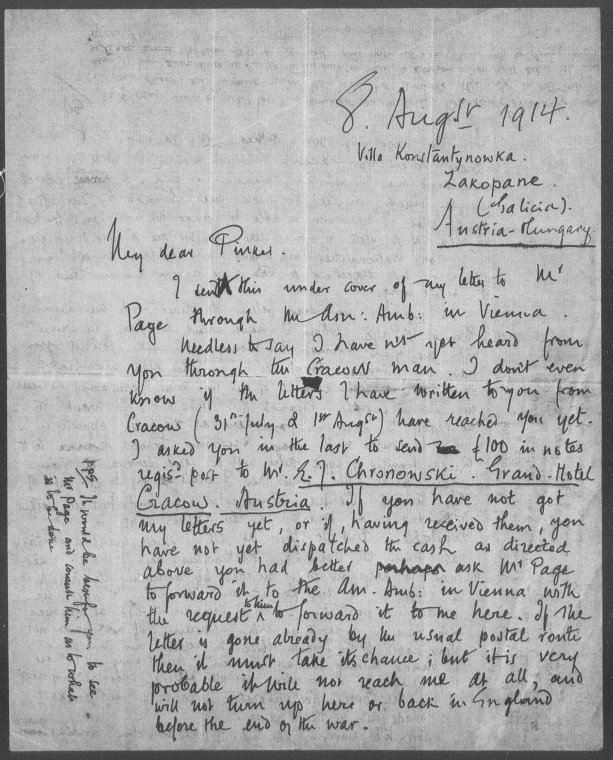 8. Augst 1914.
Villa Konstantynowka.
Zakopane.
(Galicia).
Austria-Hungary.
My dear Pinker.
I send this under cover of my letter to Mr
Page through the Am: Amb: in Vienna.
Needless to say I have not yet heard from
you through the Cracow man. I don't even
know if the letters I have written to you from
Cracow (31st July & 1st Augst) have reached you yet.
I asked you in the last to send £100 in notes
regist post to Mr. E. J. Chronowski. Grand-Hotel
Cracow. Austria. If you have not got
my letters yet, or if, having received them, you
have not yet dispatched the cash as directed
above you had better perhaps ask Mr Page
to forward it to the Am. Amb: in Vienna with
the request to him to forward it to me here. If the
letter is gone already by the usual postal route
then it must take its chance; but it is very
probable it will not reach me at all, and
will not turn up here or back in England
before the end of the war.
It would be best for you to see
Mr Page and consult him as to what
is to be done